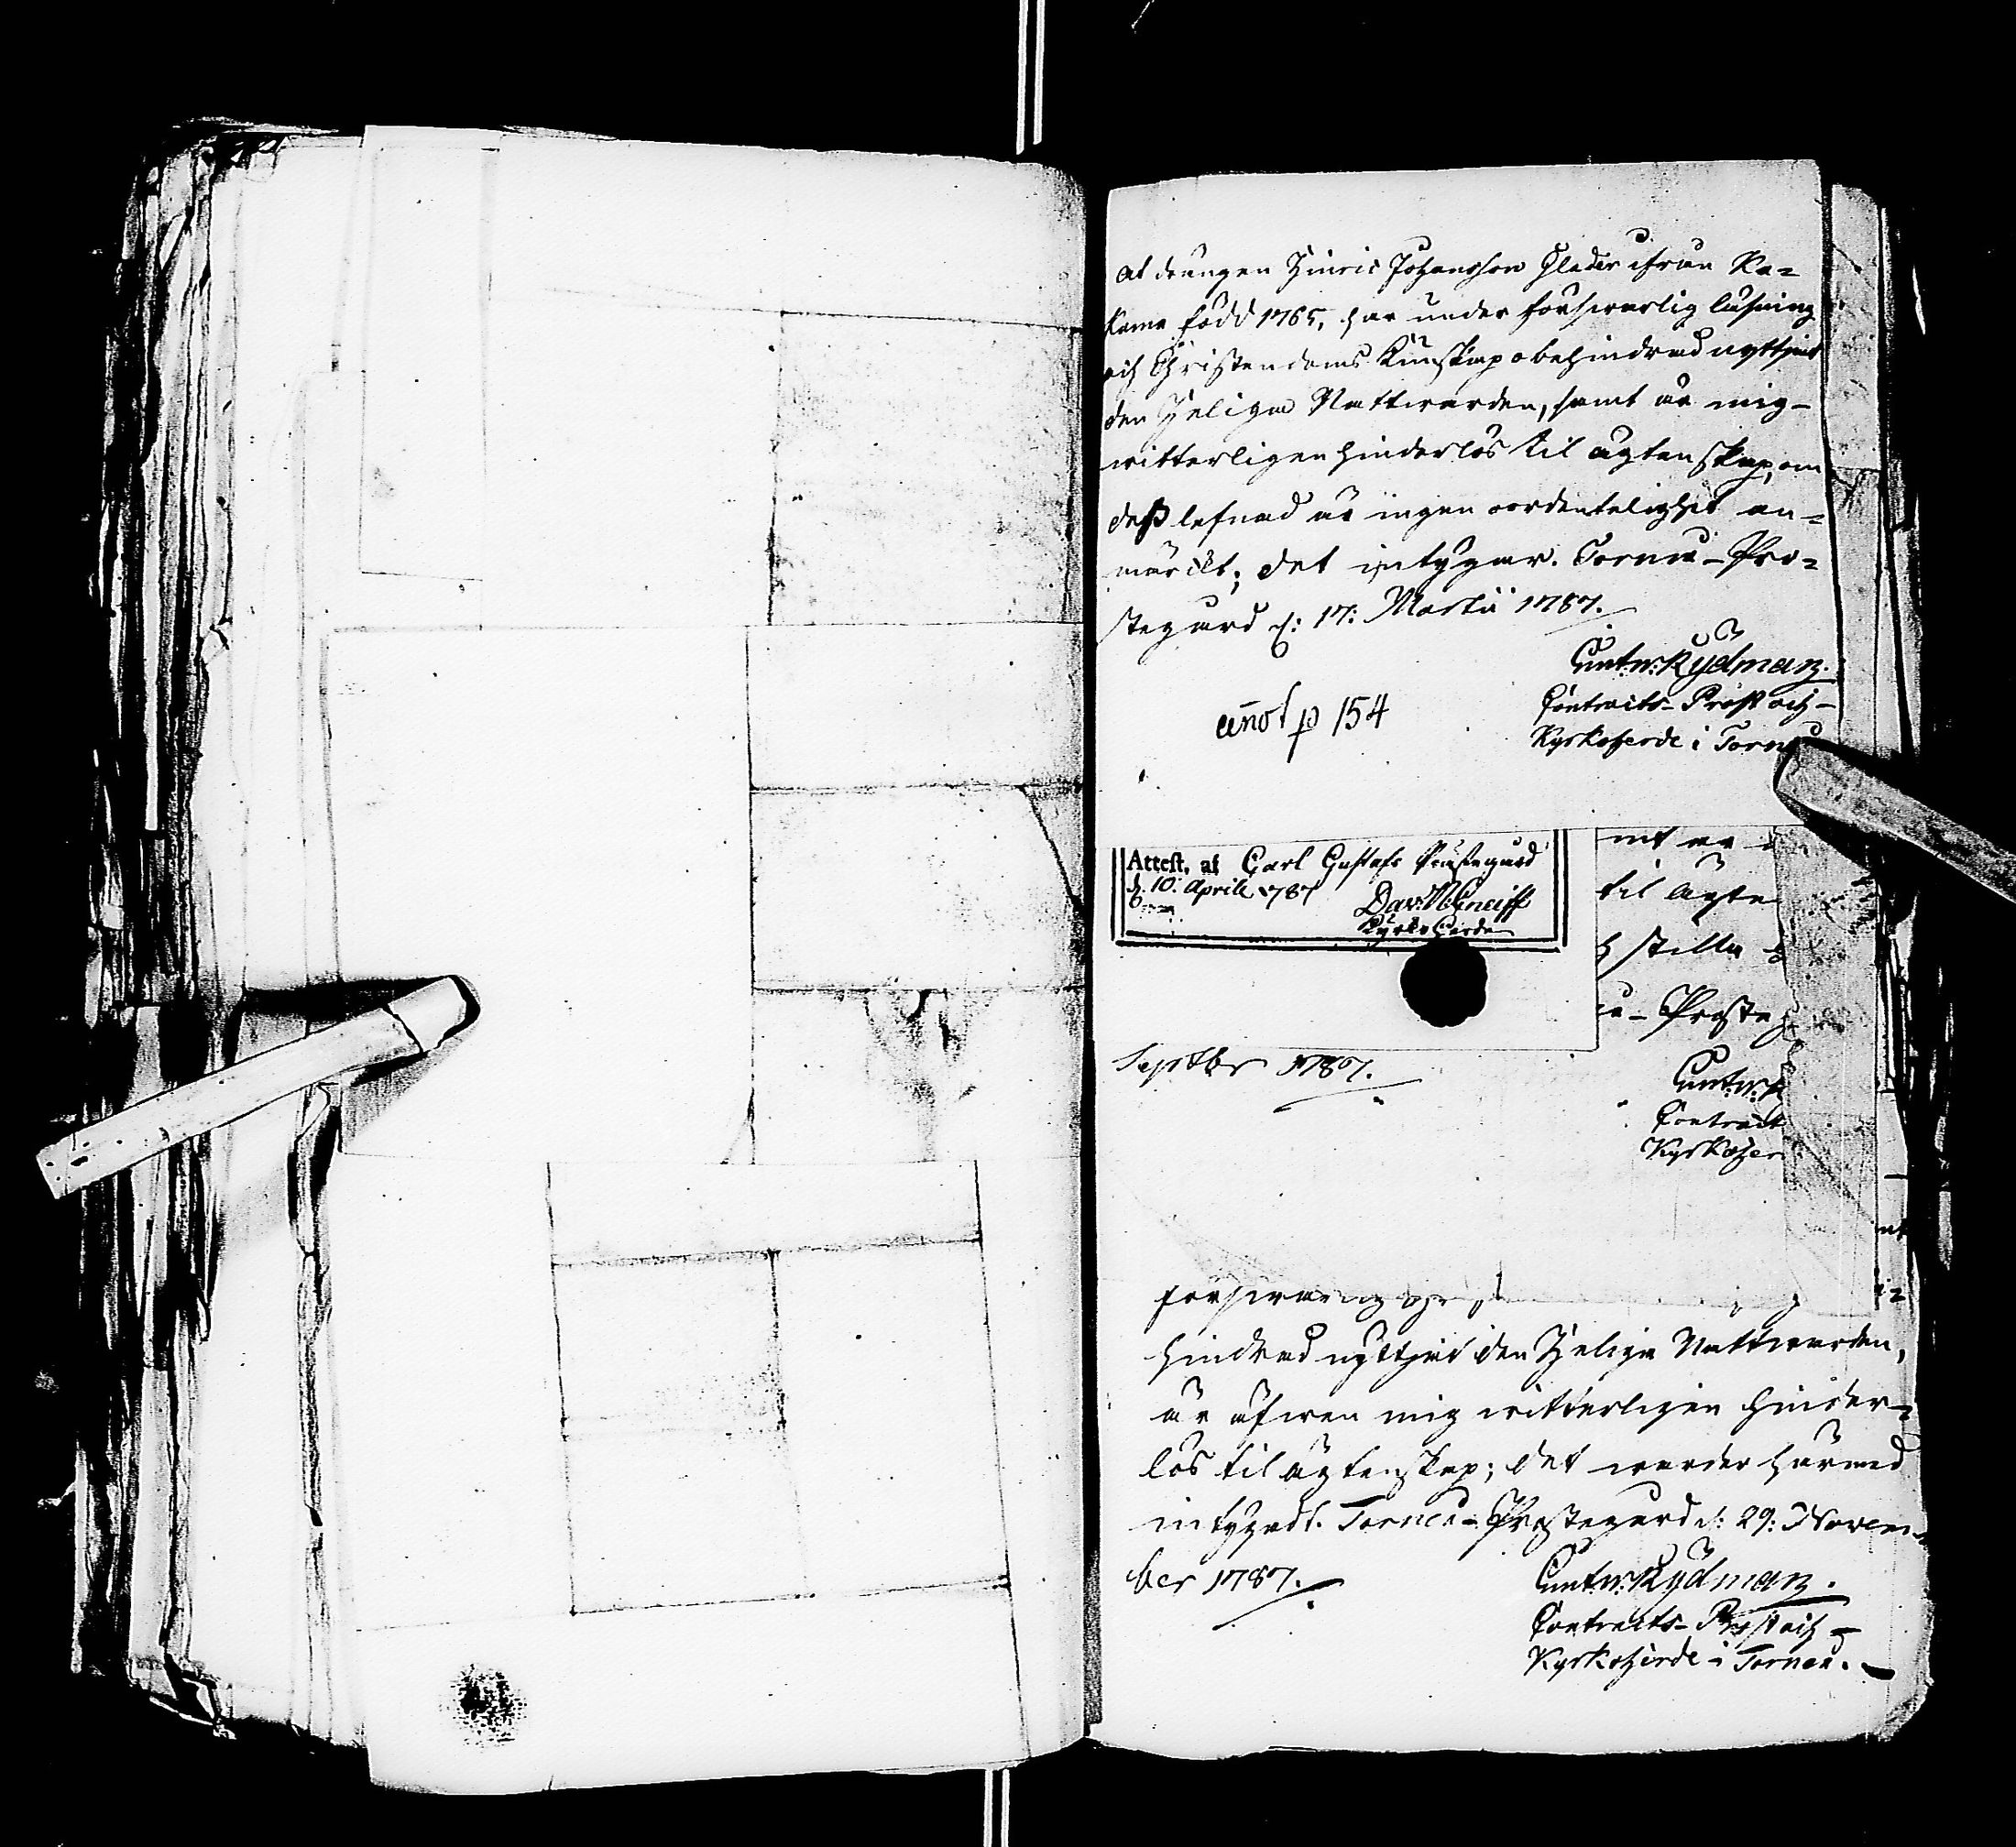 at drängen Hinric Johansson Glader ifrån Ka=
kama född 1765, har under förswarlig läsning
och Christendoms Kunskap obehindrad nyttjat
den Heliga Nattwarden, samt är mig-
witterligen hinderlös til ägtenskap, om
deß lefnad är ingen oordentelighet an=
märckt; det intygar. Torneå-Pro=
stegård d: 17: Martii 1787.
And: Rydman.
Contracts-Prost och-
Kyrkoherde i Torneå
annot p 154
Attest, af Carl Gustafs Prästegård
d. 10. Aprile 1787
Dav:
Kyrko Herde
mt är
til ägte
h stilla
eå-Prosteg
Septbr 1787.
Contract
Kyrkoher
hindrad nyttjat den Heliga Nattwarden,
är äfwen mig witterligen hinder=
lös til ägtenskap; det warder härmed
intygadt. Torneå-Prostegård d: 29: Novem=
ber 1787.
Rydman.
Contracts-Prost och-
Kyrkoherde i Torneå.